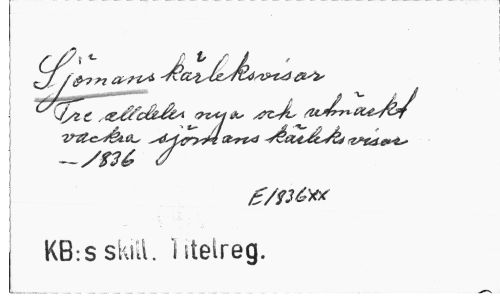 Sjömans kärleksvisor
Tre alldeles nya och utmärkt
vackra sjömans kärleksvisor
— 1836
E1836xx
KB:s skill. Titelreg.